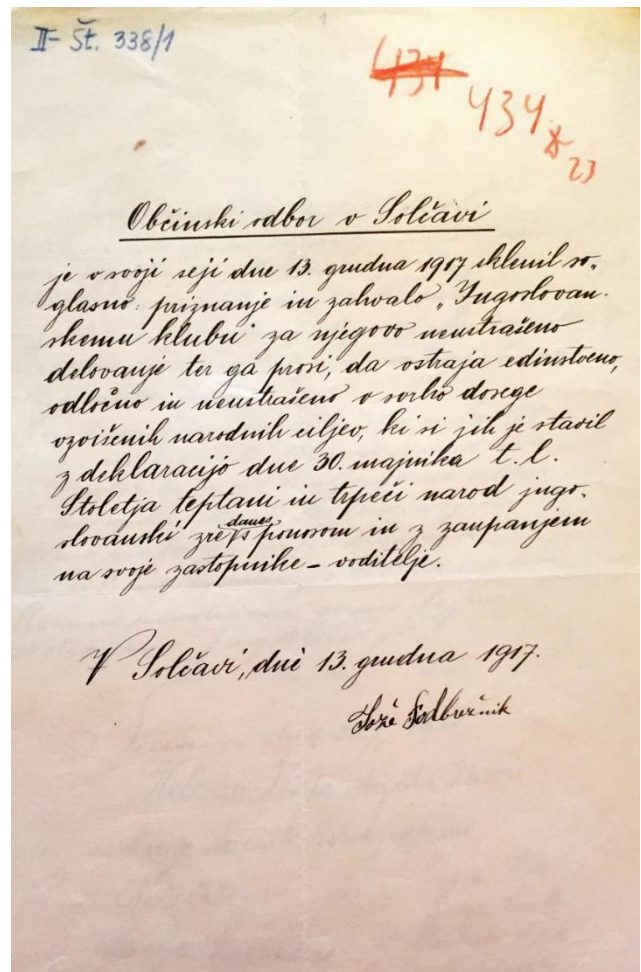 1
II- Št. 338/1
434
434
23
Občinski odbor v Solčavi
je v svoji seji dne 13. grudna 1917 sklenil so-
glasno: priznanje in zahvalo „Jugoslovan-
skemu klubu" za njegovo neustrašeno
delovanje ter ga prosi, da ostaja edinstveno,
odločno in neustrašeno v svrho dosege
vzvišenih narodnih ciljev, ki si jih je stavil
z deklaracijo dne 30. majnika t. l.
Stoletja teptani in trpeči narod jugo-
slovanski zre danes s ponosom in z zaupanjem
na svoje zastopnike - voditelje.
V Solčavi, dne 13. grudna 1917.
Jože